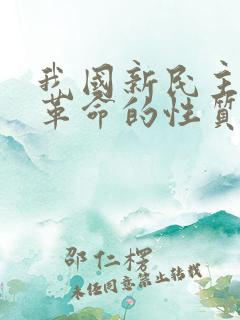 我國新民主
革命的性質
邵仁楞
未經同意禁止轉載